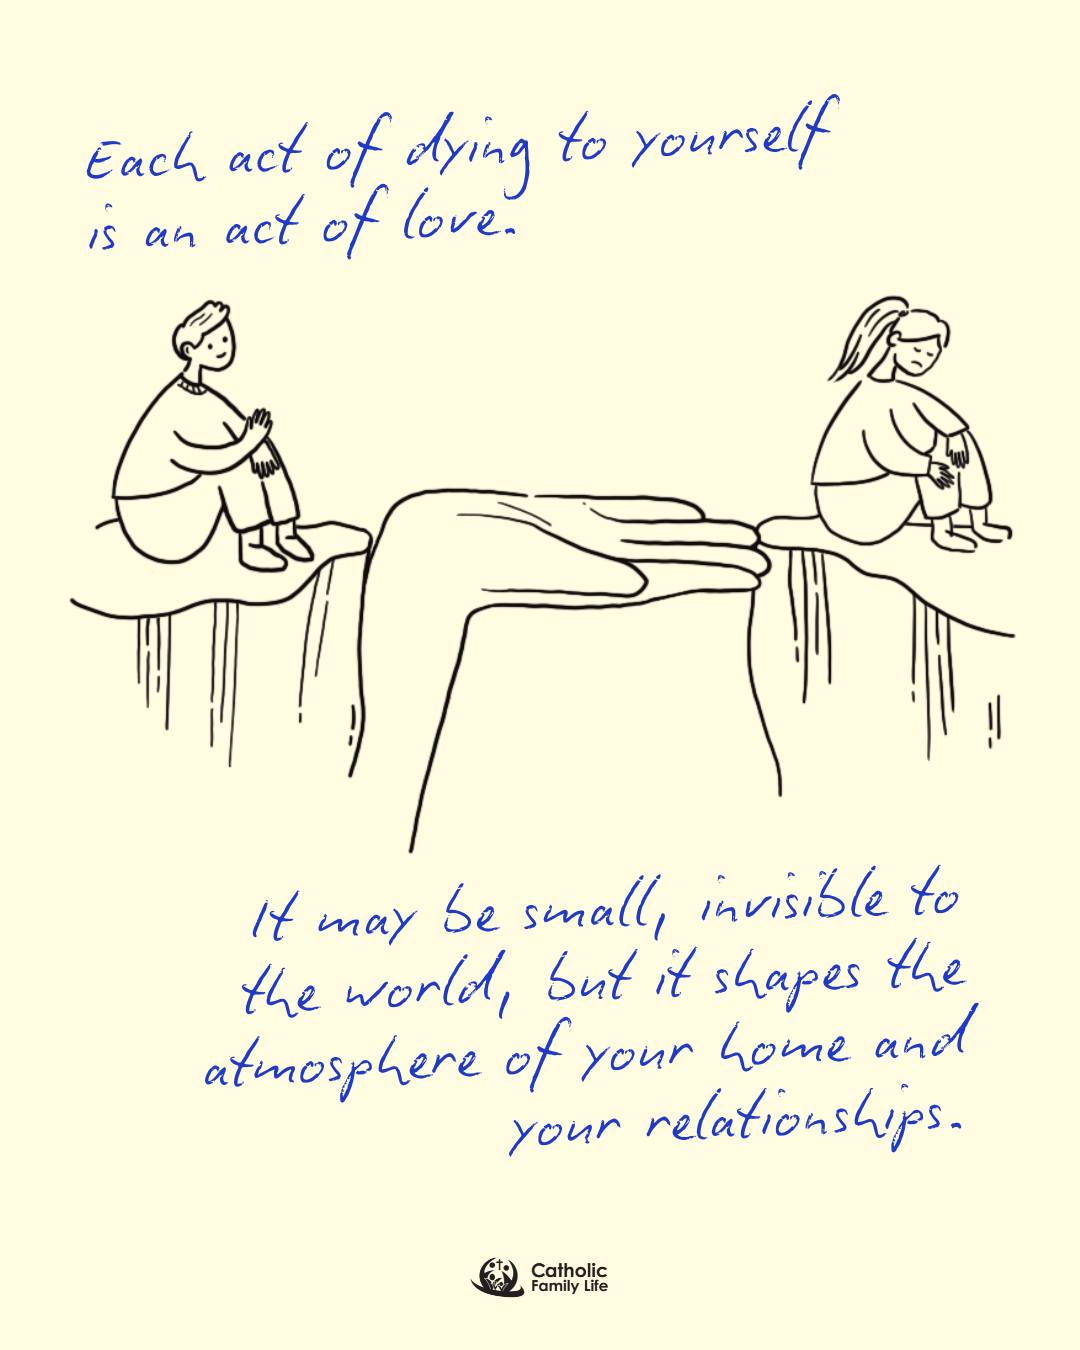 Each act of dying to yourself
is an act of love.
It may be small, invisible to
the world, but it shapes the
atmosphere of your home and
your relationships.
Catholic
Family Life